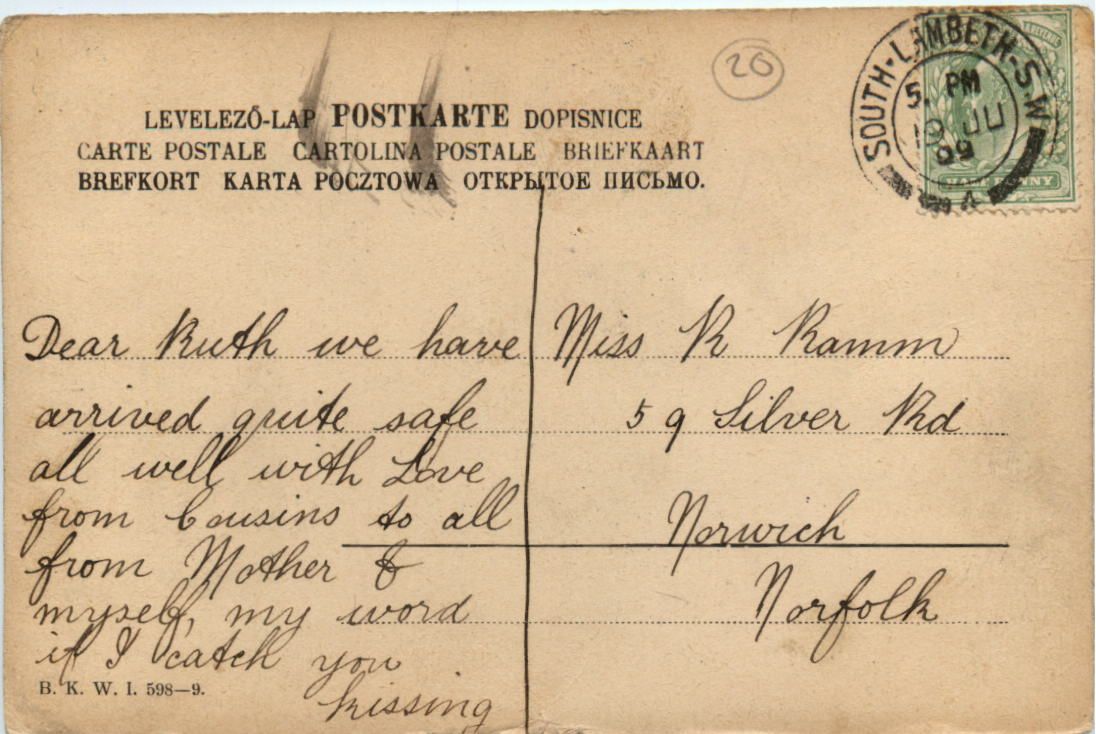 20
SOUTH·LAMBETH·S.W
5. PM
19 JU
09
4
LEVELEZŐ-LAP POSTKARTE DOPISNICE
CARTE POSTALE CARTOLINA POSTALE BRIEFKAART
BREFKORT KARTA POCZTOWA ОТКРЫТОЕ ПИСЬМО.
Dear Ruth we have
arrived quite safe
all well with Love
from Cousins to all
from Mother &
myself, my word
if I catch you
kissing
B. K. W. I. 598—9.
Miss R Ramm
59 Silver Rd
Norwich
Norfolk